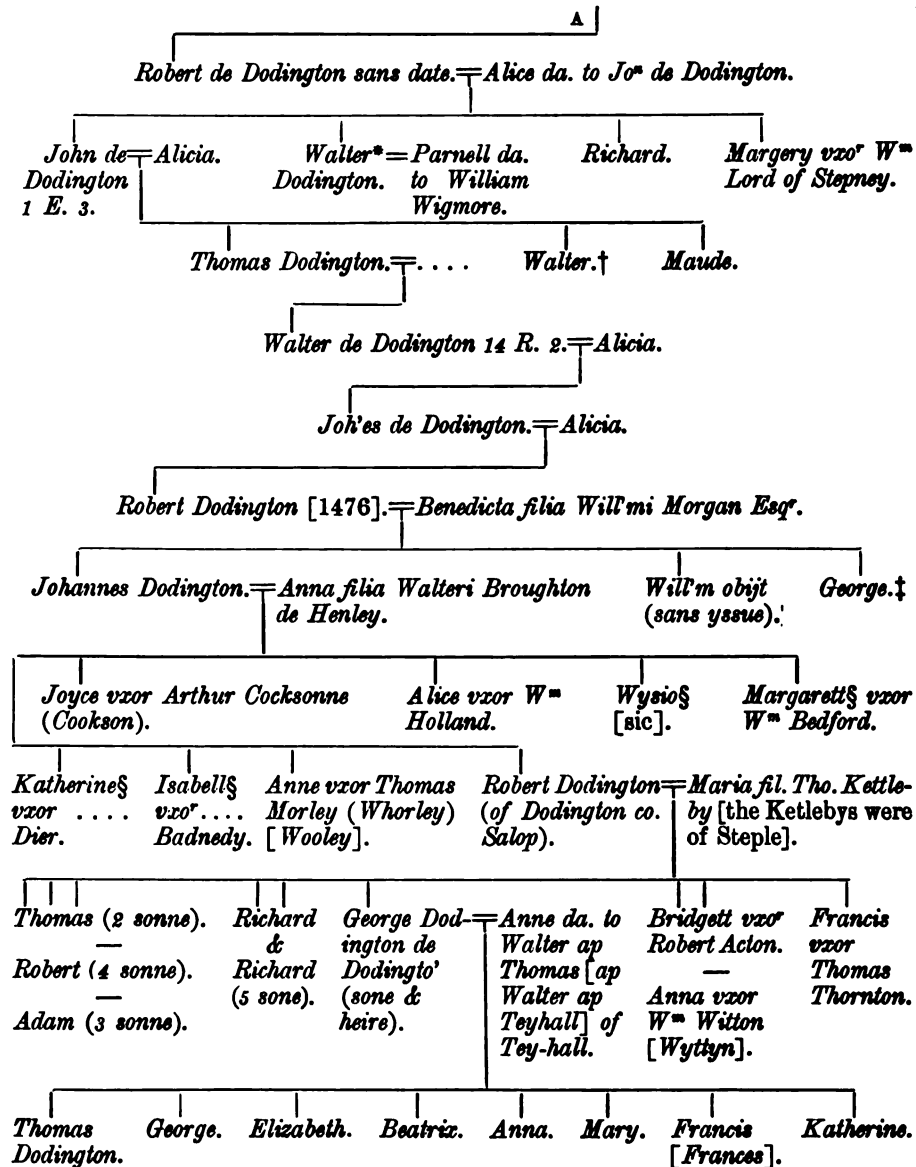 A
Robert de Dodington sans date.=Alice da. to Joⁿ de Dodington.
John de=Alicia.
Dodington
1 E. 3.
Walter*=Parnell da.
Dodington. to William
Wigmore.
Richard.
Margery vxoʳ Wᵐ
Lord of Stepney.
Thomas Dodington.=. . . .
Walter.†
Maude.
Walter de Dodington 14 R. 2.=Alicia.
Joh'es de Dodington.=Alicia.
Robert Dodington [1476].=Benedicta filia Will'mi Morgan Esqʳ.
Johannes Dodington.=Anna filia Walteri Broughton
de Henley.
Will'm obijt
(sans yssue).
George.‡
Joyce vxor Arthur Cocksonne
(Cookson).
Alice vxor Wᵐ
Holland.
Wysio§
[sic].
Margarett§ vxor
Wᵐ Bedford.
Katherine§
vxor ....
Dier.
Isabell§
vxoʳ ....
Badnedy.
Anne vxor Thomas
Morley (Whorley)
[Wooley].
Robert Dodington=Maria fil. Tho. Kettle-
(of Dodington co.
Salop).
by [the Ketlebys were
of Steple].
Thomas (2 sonne).
—
Robert (4 sonne).
—
Adam (3 sonne).
Richard
&
Richard
(5 sone).
George Dod-=Anne da. to
ington de
Dodingto'
(sone &
heire).
Walter ap
Thomas [ap
Walter ap
Teyhall] of
Tey-hall.
Bridgett vxoʳ
Robert Acton.
—
Anna vxor
Wᵐ Witton
[Wyttyn].
Francis
vxor
Thomas
Thornton.
Thomas
Dodington.
George.
Elizabeth.
Beatrix.
Anna.
Mary.
Francis
[Frances].
Katherine.